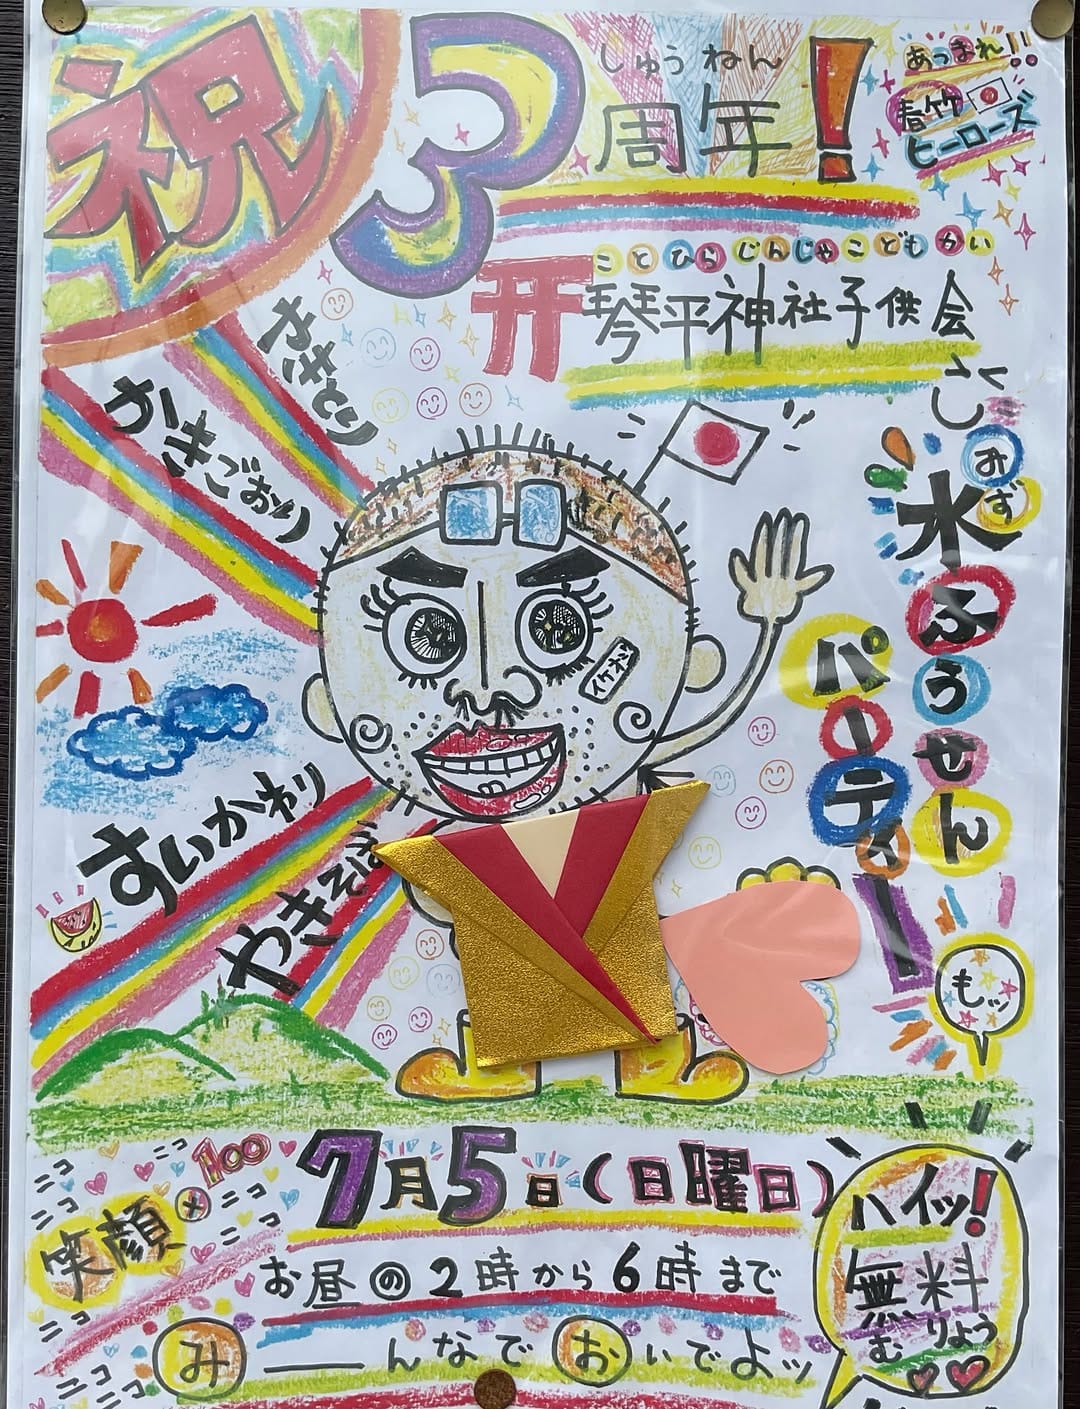 祝
3
しゅうねん
周年!
あつまれ!!
春竹
ヒーローズ
ことひらじんじゃこどもかい
琴平神社子供会
やきとり
かきごおり
みず
水ふうせん
パーティー
イケメン
すいかわり
やきそば
もッ
ニコ
ニコ
ニコ
ニコ
ニコ
笑顔×100
7月5日(日曜日)
お昼の2時から6時まで
みーんなでおいでよッ
ニコ
ニコ
ニコ
ハイッ!
無料
むりょう